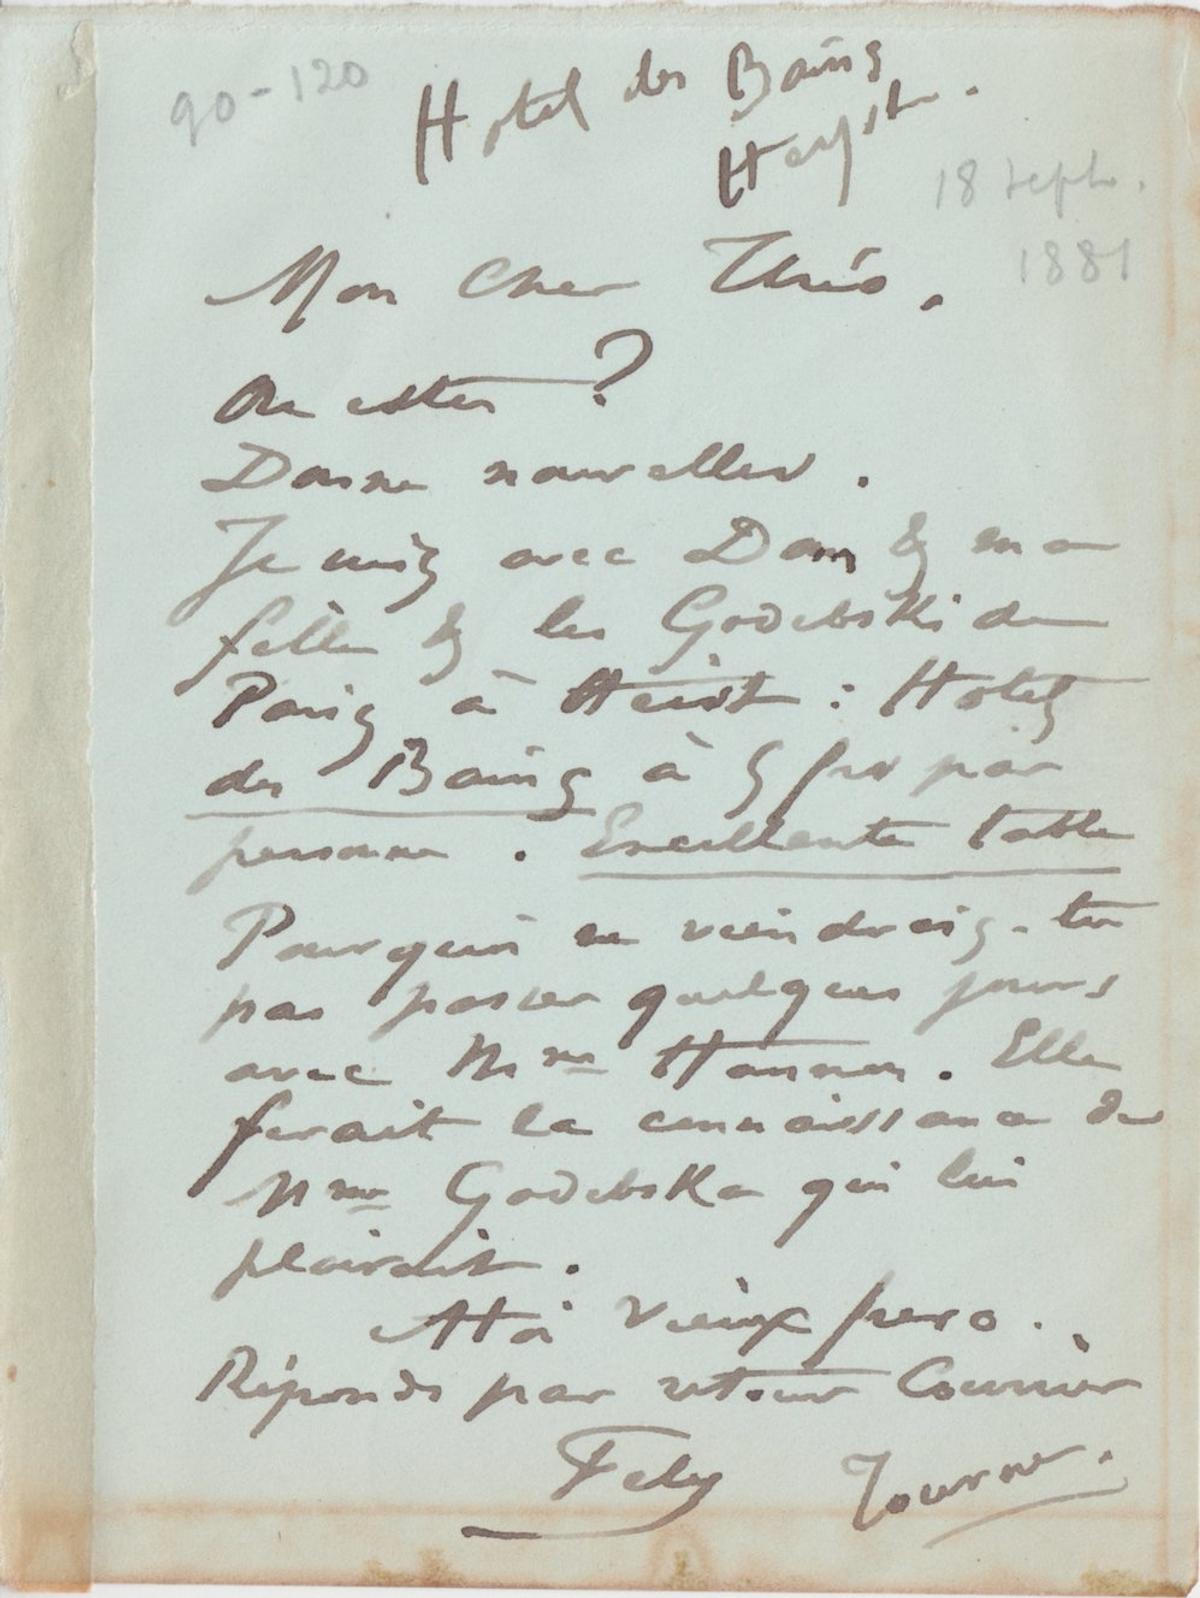 90-120
Hotel des Bains
Heyst.
18 sept.
1881
Mon Cher Théo.
Ou estu ?
Donne nouvelles.
Je suis avec Dom & ma
fille & les Godebski de
Paris à Heist : Hotel
des Bains à 5 frs par
personne. Excellente table
Pourquoi ne viendrais-tu
pas passer quelques jours
avec Mme Hannon. Elle
ferait la connaissance de
Mme Godebska qui lui
plairait.
A toi vieux frero.
Réponds par retour Courrier
Fély
Tourne.